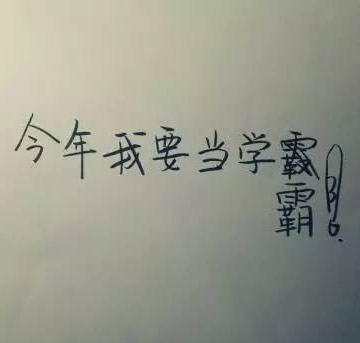 今年我要当学霸
霸!